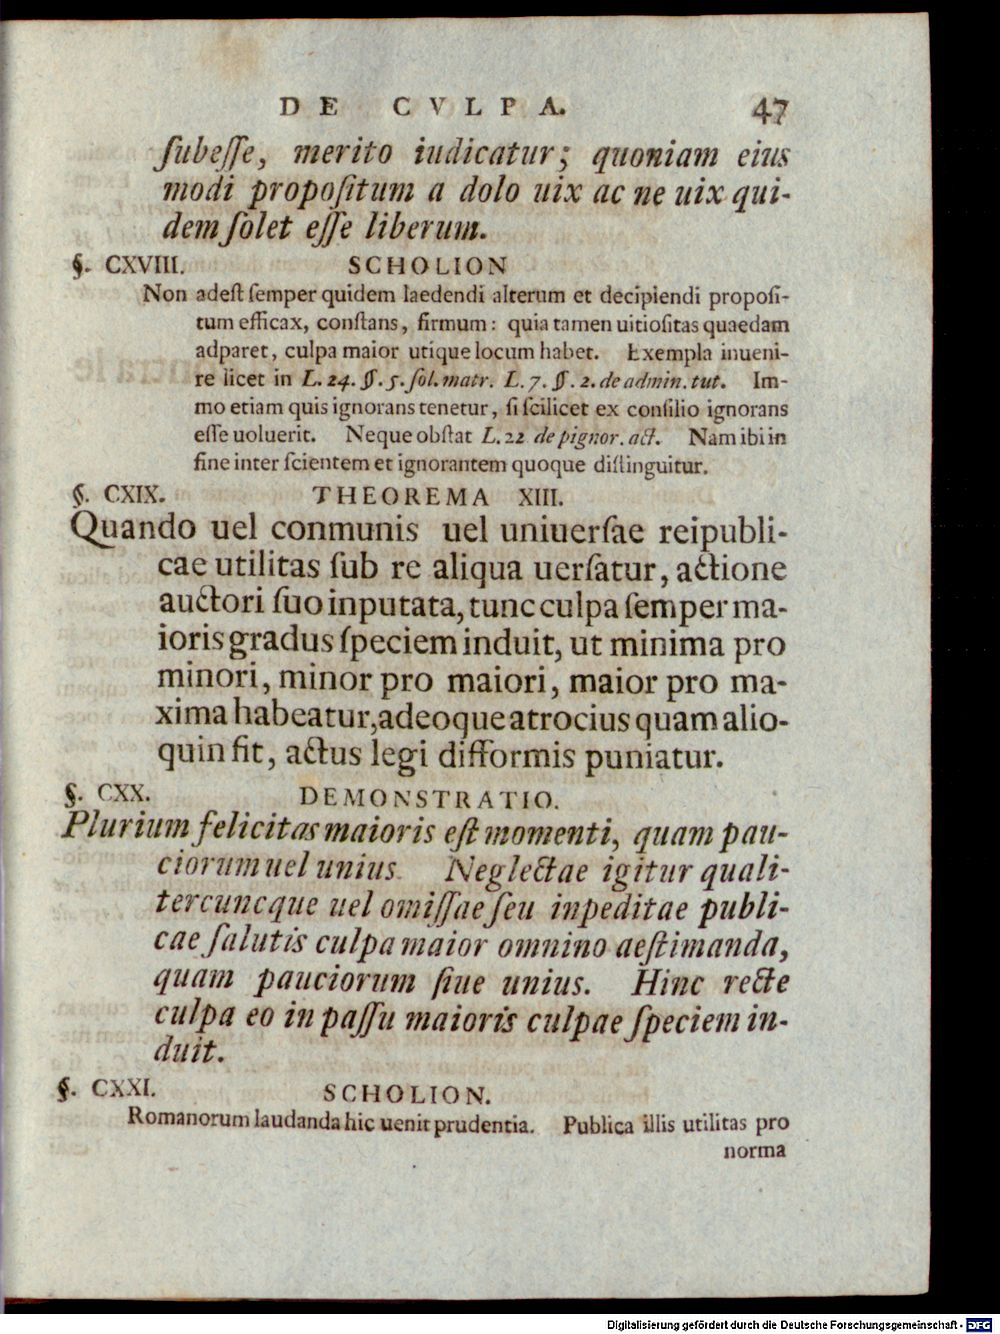 DE CVLPA. 47
ſubeſſe, merito iudicatur; quoniam eius
modi propoſitum a dolo uix ac ne uix qui-
dem ſolet eſſe liberum.
§. CXVIII. SCHOLION
Non adeſt ſemper quidem laedendi alterum et decipiendi propoſi-
tum efficax, conſtans, firmum: quia tamen uitioſitas quaedam
adparet, culpa maior utique locum habet. Exempla inueni-
re licet in L. 24. ff. 5. ſol. matr. L. 7. ff. 2. de admin. tut. Im-
mo etiam quis ignorans tenetur, ſi ſcilicet ex conſilio ignorans
eſſe uoluerit. Neque obſtat L. 22 de pignor. act. Nam ibi in
fine inter ſcientem et ignorantem quoque diſtinguitur.
§. CXIX. THEOREMA XIII.
Quando uel conmunis uel uniuerſae reipubli-
cae utilitas ſub re aliqua uerſatur, actione
auctori ſuo inputata, tunc culpa ſemper ma-
ioris gradus ſpeciem induit, ut minima pro
minori, minor pro maiori, maior pro ma-
xima habeatur, adeoque atrocius quam alio-
quin fit, actus legi difformis puniatur.
§. CXX. DEMONSTRATIO.
Plurium felicitas maioris eſt momenti, quam pau-
ciorum uel unius. Neglectae igitur quali-
tercuncque uel omiſſae ſeu inpeditae publi-
cae ſalutis culpa maior omnino aeſtimanda,
quam pauciorum ſiue unius. Hinc recte
culpa eo in paſſu maioris culpae ſpeciem in-
duit.
§. CXXI. SCHOLION.
Romanorum laudanda hic uenit prudentia. Publica illis utilitas pro
norma
Digitalisierung gefördert durch die Deutsche Forschungsgemeinschaft - DFG